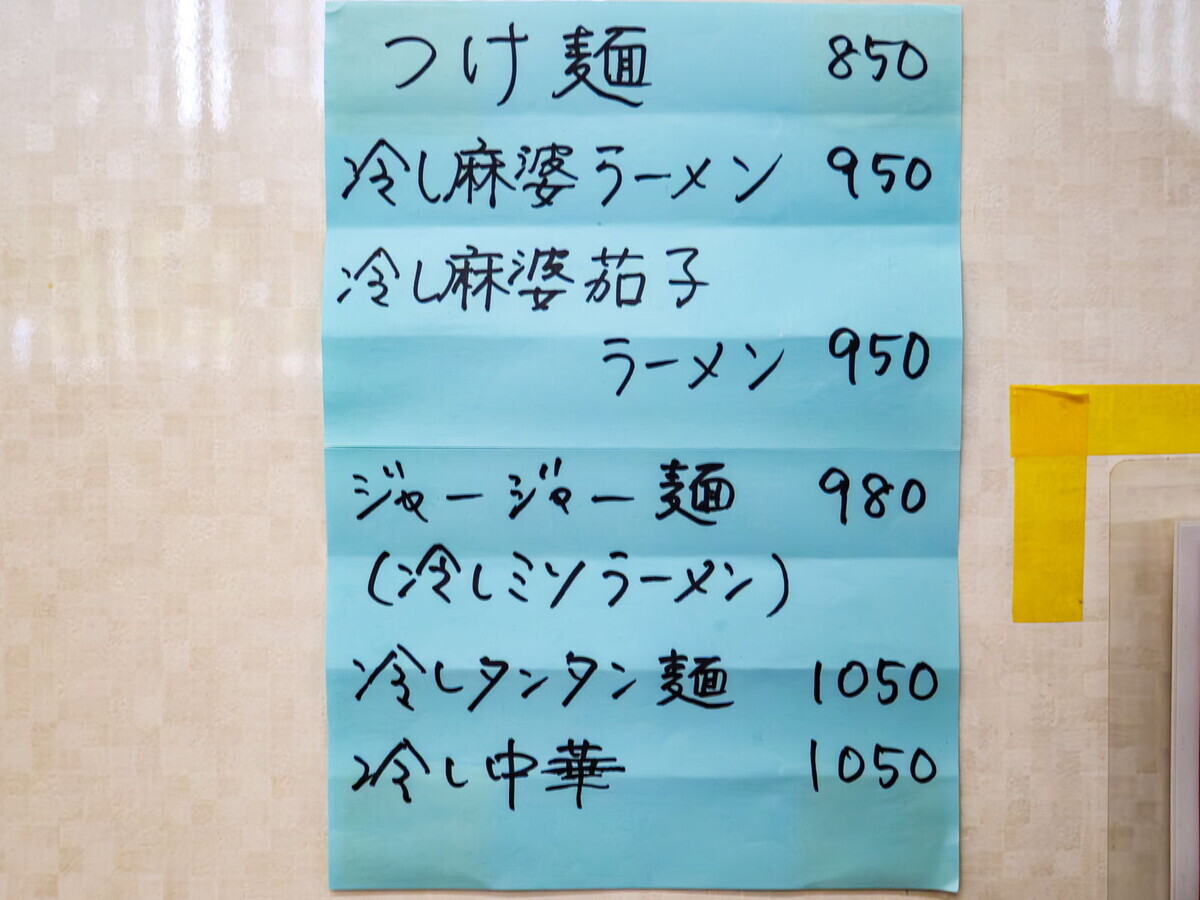 つけ麺 850
冷し麻婆ラーメン 950
冷し麻婆茄子
ラーメン 950
ジャージャー麺 980
(冷しミソラーメン)
冷しタンタン麺 1050
冷し中華 1050